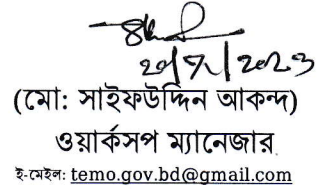 (মো: সাইফউদ্দিন আকন্দ)
ওয়ার্কসপ ম্যানেজার
ই-মেইল: temo.gov.bd@gmail.com